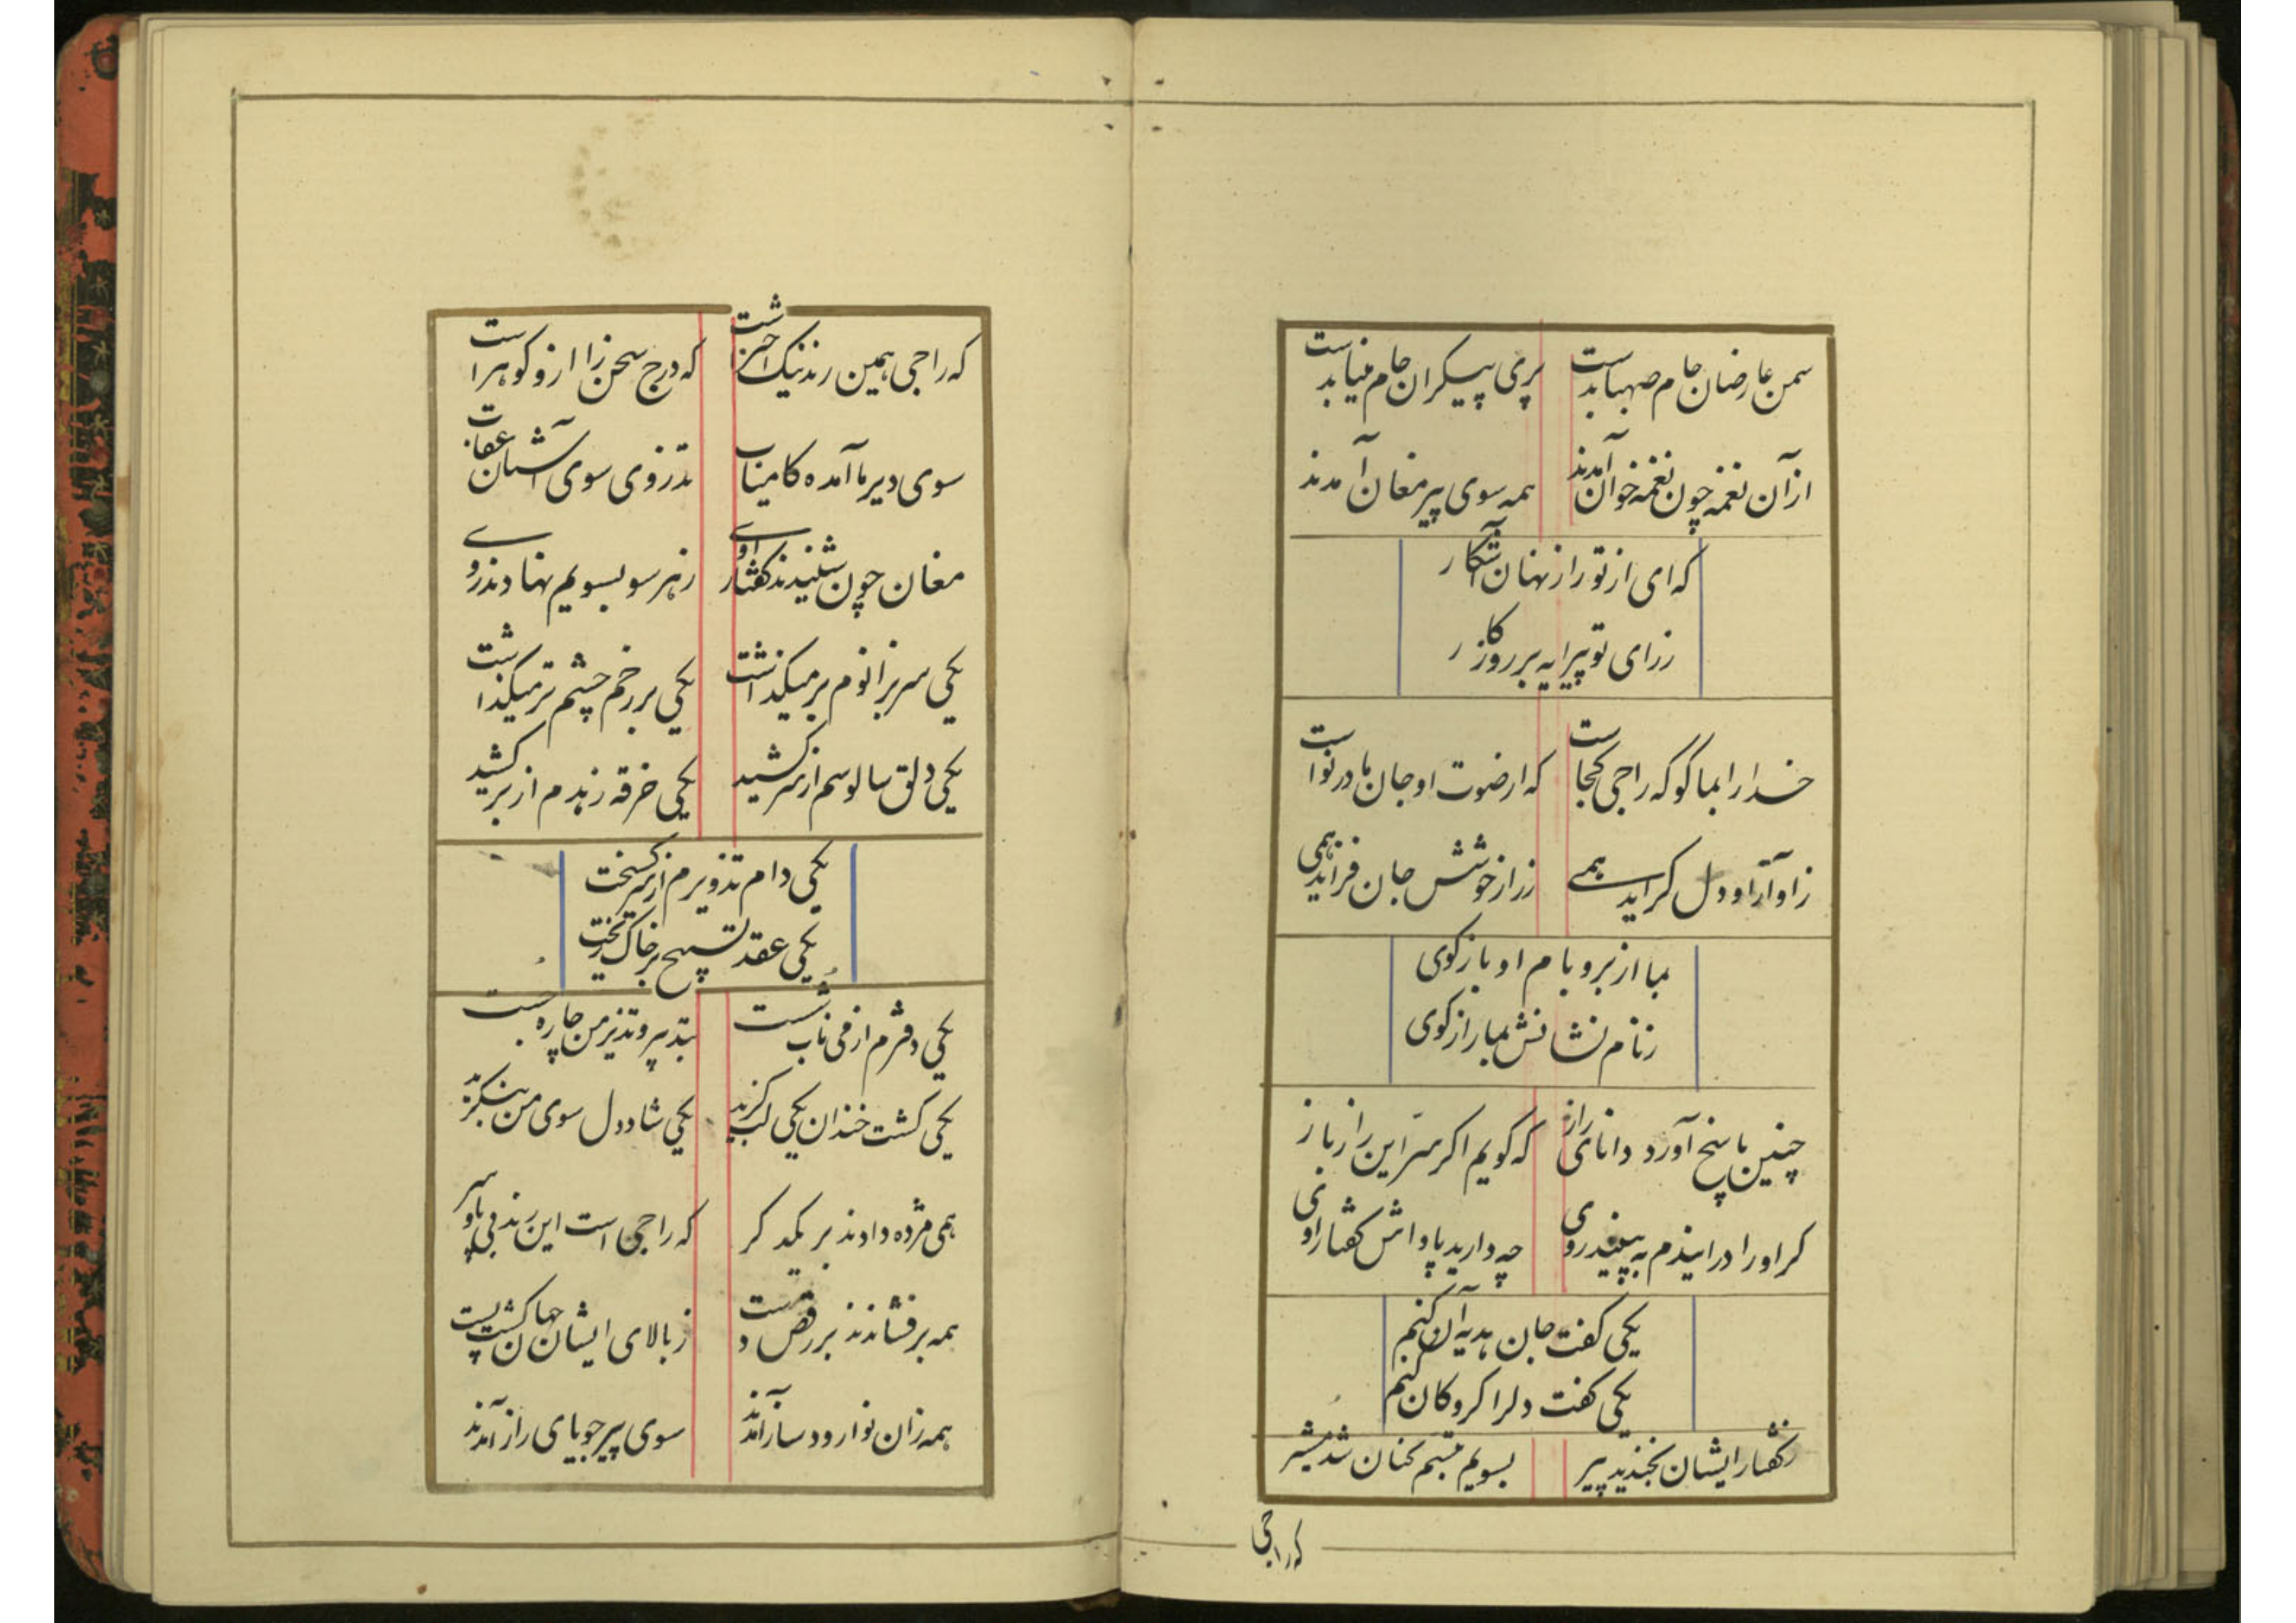 سمن عارضان جام صهبا بدست پری پیکران جام مینا بدست
از آن نغمه چون نغمه خوان آمدند همه سوی پیر مغان آمدند
که ای از تو راز نهان آشکار
ز رای تو پیرایه بر روزکار
خدا را بما کو که راجی کجاست که از صوت او جان ما در نواست
ز آواز او دل کراید همی ز راز خوشش جان فزاید همی
بما از برو بام او باز کوی
ز نام نشانش بما راز کوی
چنین پاسخ آورد دانای راز که کویم اکر سر این راز باز
کر او را در ایندم به بینید روی چه دارید پاداش کفتار اوی
یکی کفت جان هدیه آن کنم
یکی کفت دلرا کروکان کنم
ز کفتار ایشان بخندید پیر بسویم تبسم کنان شد مشیر
که راجی
که راجی همین رند نیک اخترشت که درج سخن زا ازو کوهر است
سوی دیر ما آمده کامیاب تذروی سوی آشیان عقاب
مغان چون شنیدند کفتار اوی ز هر سو بسویم نهادند روی
یکی سر بزانوم بر میکذاشت یکی بر رخم چشم تر میکذاشت
یکی دلق سالوسم از سر کشید یکی خرقه زهدم از بر کشید
یکی دام تذویرم از سر کسیخت
یکی عقد تسبیح بر خاک ریخت
یکی دفترم از می ناب شست بتدبیر و تذیر من چاره جست
یکی کشت خندان یکی لب کزید یکی شاد دل سوی من بنکرید
همی مژده دادند بر یکدکر که راجی است این رند بی پا و سر
همه بر فشاندند بر رقص دست ز بالای ایشان جهان کشت پست
همه زان نوا رود ساز آمدند سوی پیر جویای راز آمدند